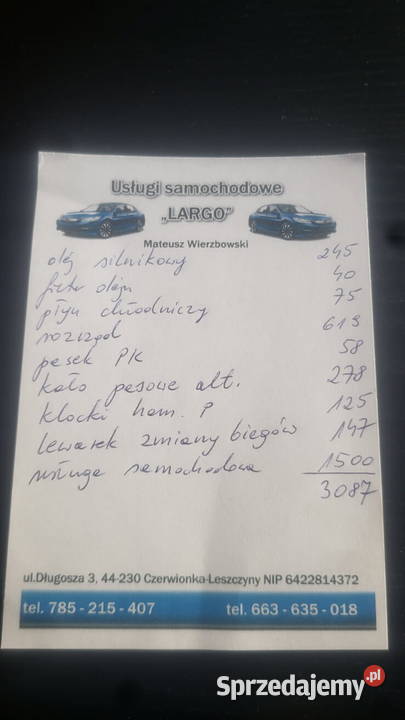 Usługi samochodowe
„LARGO”
Mateusz Wierzbowski
olej silnikowy 245
filtr oleju 40
płyn chłodniczy 75
rozrząd 619
pasek PK 58
koło pasowe alt. 278
klocki ham. P 125
lewarek zmiany biegów 147
usługa samochodowa 1500
3087
ul.Długosza 3, 44-230 Czerwionka-Leszczyny NIP 6422814372
tel. 785 - 215 - 407 tel. 663 - 635 - 018
Sprzedajemy.pl